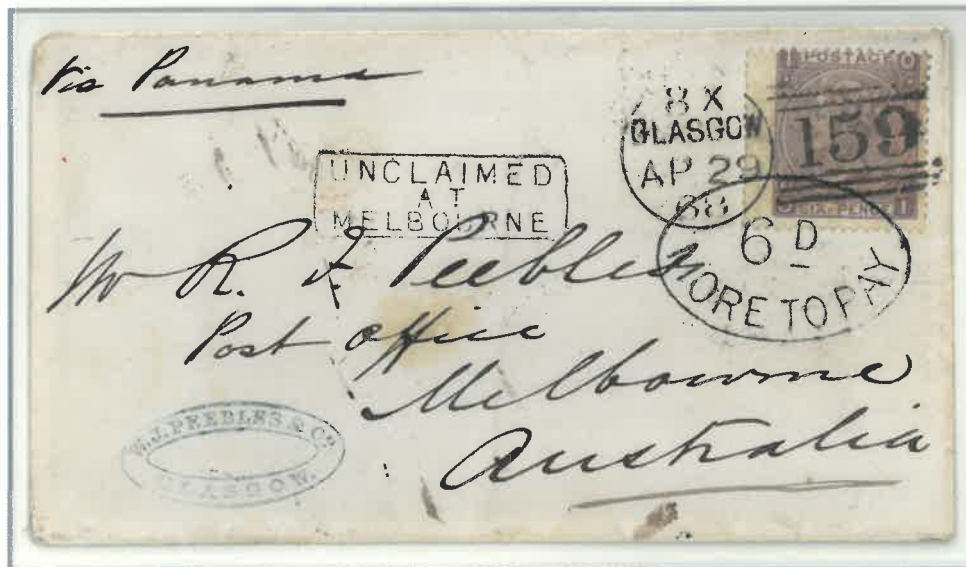 Via Panama
POSTAGE
8 X
GLASGOW
AP 29
68
159
SIX-PENCE
UNCLAIMED
AT
MELBOURNE
6D
MORE TO PAY
Mr R. J. Peebles
Post Office
Melbourne
Australia
W.J. PEEBLES & Co
GLASGOW.